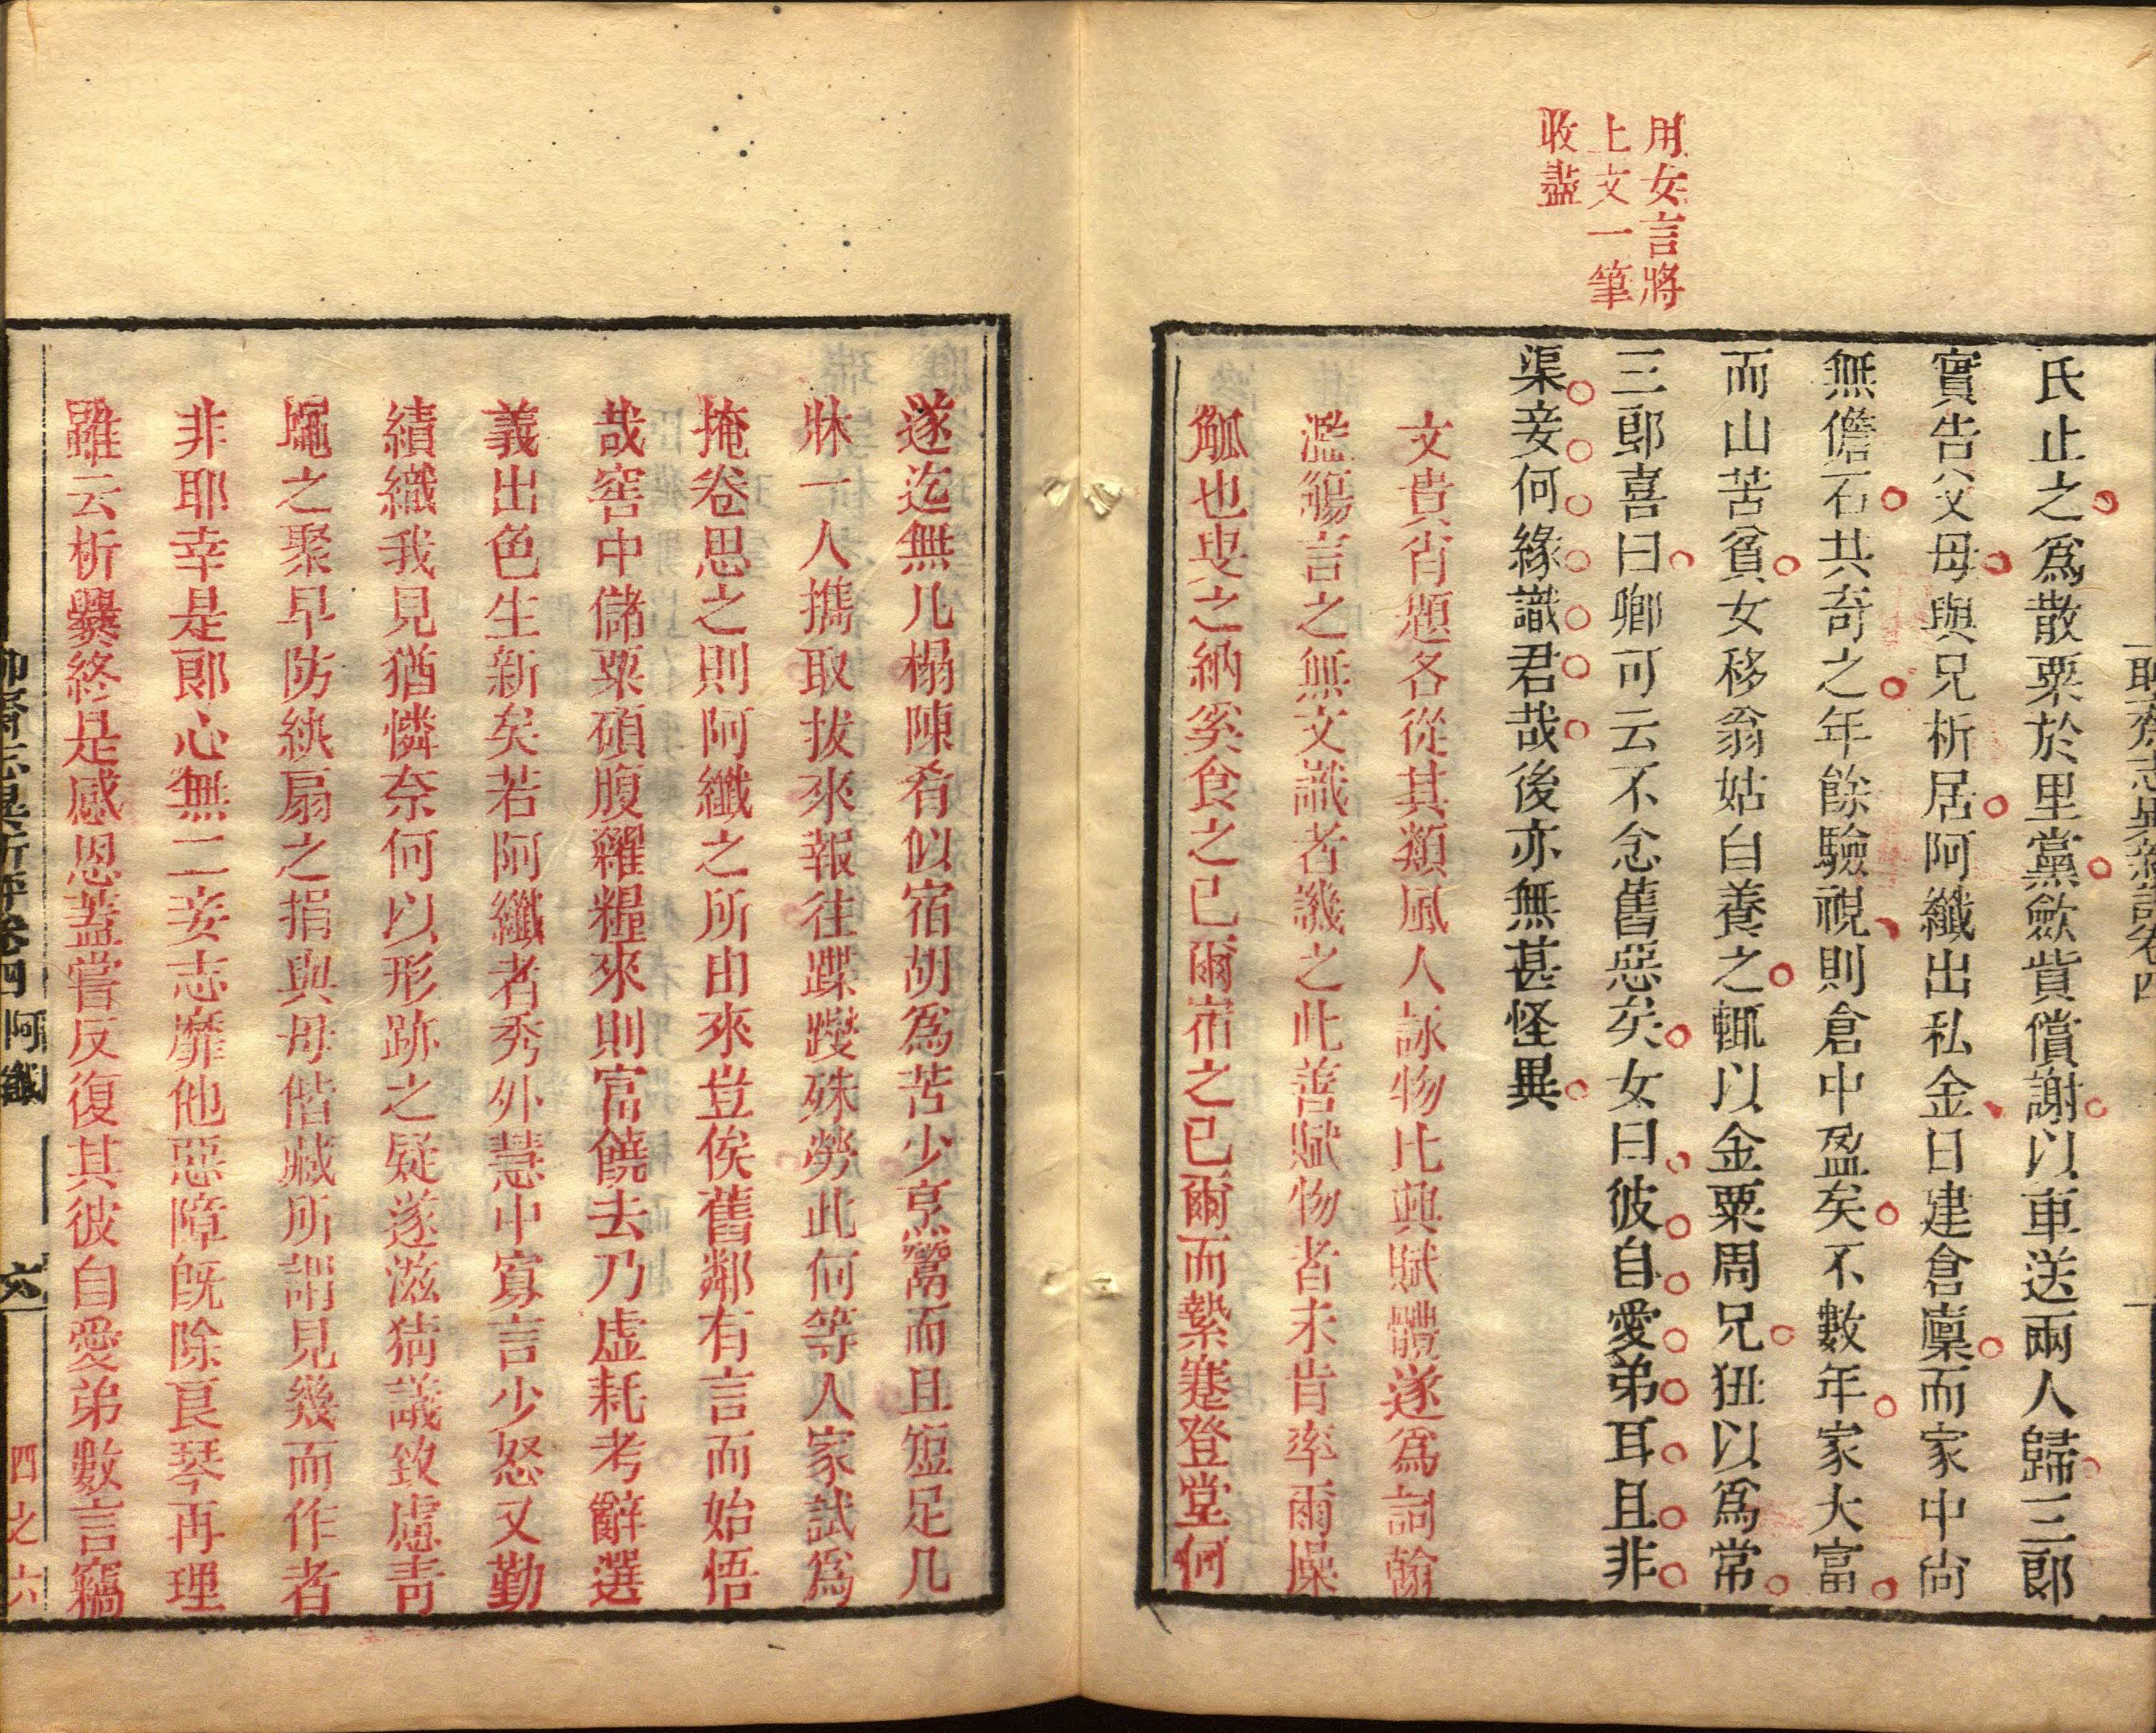 用女言將
上文一筆
收盡
氏止之爲散粟於里黨歛貲償謝以車送兩人歸三郎
實告父母與兄析居阿纖出私金日建倉廩而家中尚
無儋石共奇之年餘驗視則倉中盈矣不數年家大富
而山苦貧女移翁姑自養之輒以金粟周兄狃以爲常
三郎喜曰卿可云不念舊惡矣女曰彼自愛弟耳且非
渠妾何緣識君哉後亦無甚怪異
文貴肖題各從其類風人詠物比興賦體遂爲詞翰
濫觴言之無文識者譏之此善賦物者未肯率爾操
觚也叟之納奚食之已爾宿之已爾而縶蹇登堂何
遂迄無几榻陳肴似宿胡爲苦少烹鬻而且短足几
牀一人攜取拔來報往蹀躞殊勞此何等人家試爲
掩卷思之則阿纖之所由來豈俟舊鄰有言而始悟
哉窖中儲粟碩腹糶糧來則富饒去乃虛耗考辭選
義出色生新矣若阿纖者秀外慧中寡言少怒又勤
績織我見猶憐奈何以形跡之疑遂滋猜議致慮青
蠅之聚早防紈扇之捐與母偕藏所謂見幾而作者
非耶幸是郎心無二妾志靡他惡障旣除良琴再理
雖云析爨終是感恩蓋嘗反復其彼自愛弟數言竊
卷四 阿纖
六
四之六